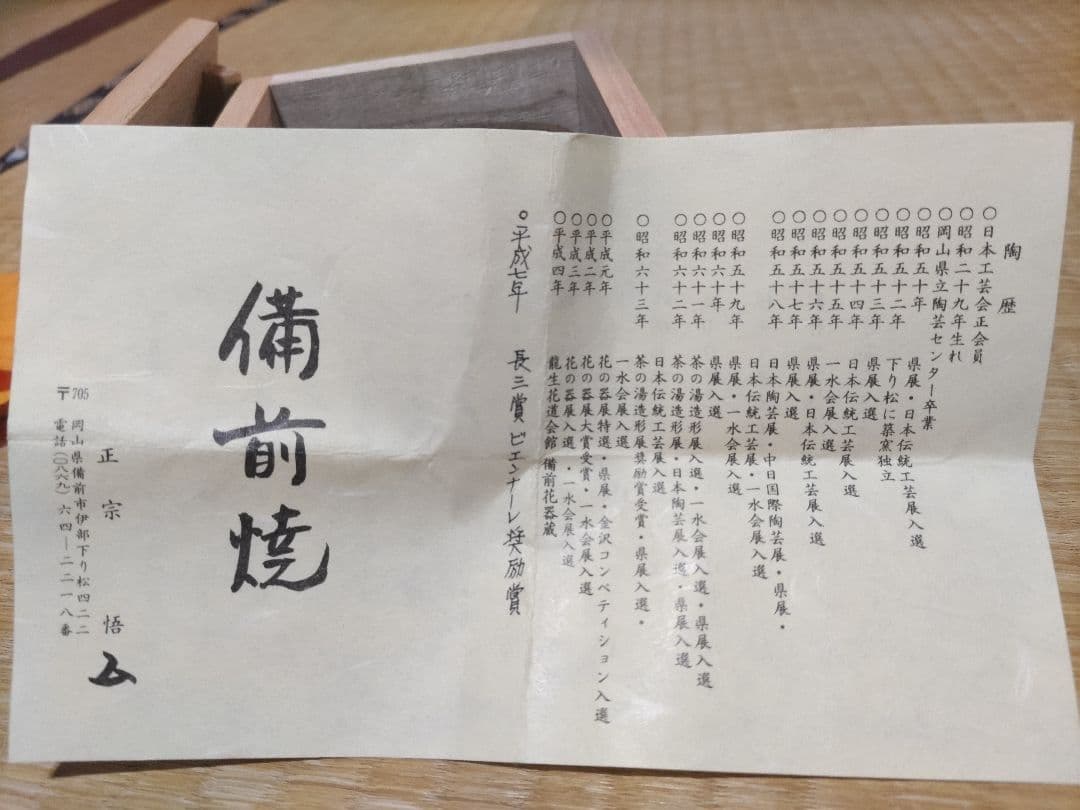 陶歴
○日本工芸会正会員
○昭和二十九年生れ
○岡山県立陶芸センター卒業
○昭和五十年 県展・日本伝統工芸展入選
○昭和五十二年 下り松に築窯独立
○昭和五十三年 県展入選
○昭和五十四年 日本伝統工芸展入選
○昭和五十五年 一水会展入選
○昭和五十六年 県展・日本伝統工芸展入選
○昭和五十七年 県展入選
○昭和五十八年 日本陶芸展・中日国際陶芸展・県展・
日本伝統工芸展・一水会展入選
○昭和五十九年 県展・一水会展入選
○昭和六十年 県展入選
○昭和六十一年 茶の湯造形展入選・一水会展入選・県展入選
○昭和六十二年 茶の湯造形展・日本陶芸展入選・県展入選
日本伝統工芸展入選
○昭和六十三年 茶の湯造形展奨励賞受賞・県展入選・
一水会展入選
○平成元年 花の器展特選・県展・金沢コンペティション入選
○平成二年 花の器展大賞受賞・一水会展入選
○平成三年 花の器展入選・一水会展入選
○平成四年 龍生花道会館 備前花器蔵
○平成七年 長三賞ビエンナーレ奨励賞
備前焼
正宗悟
〒705 岡山県備前市伊部下り松四二二
電話(〇八六九)六四―二二一八番